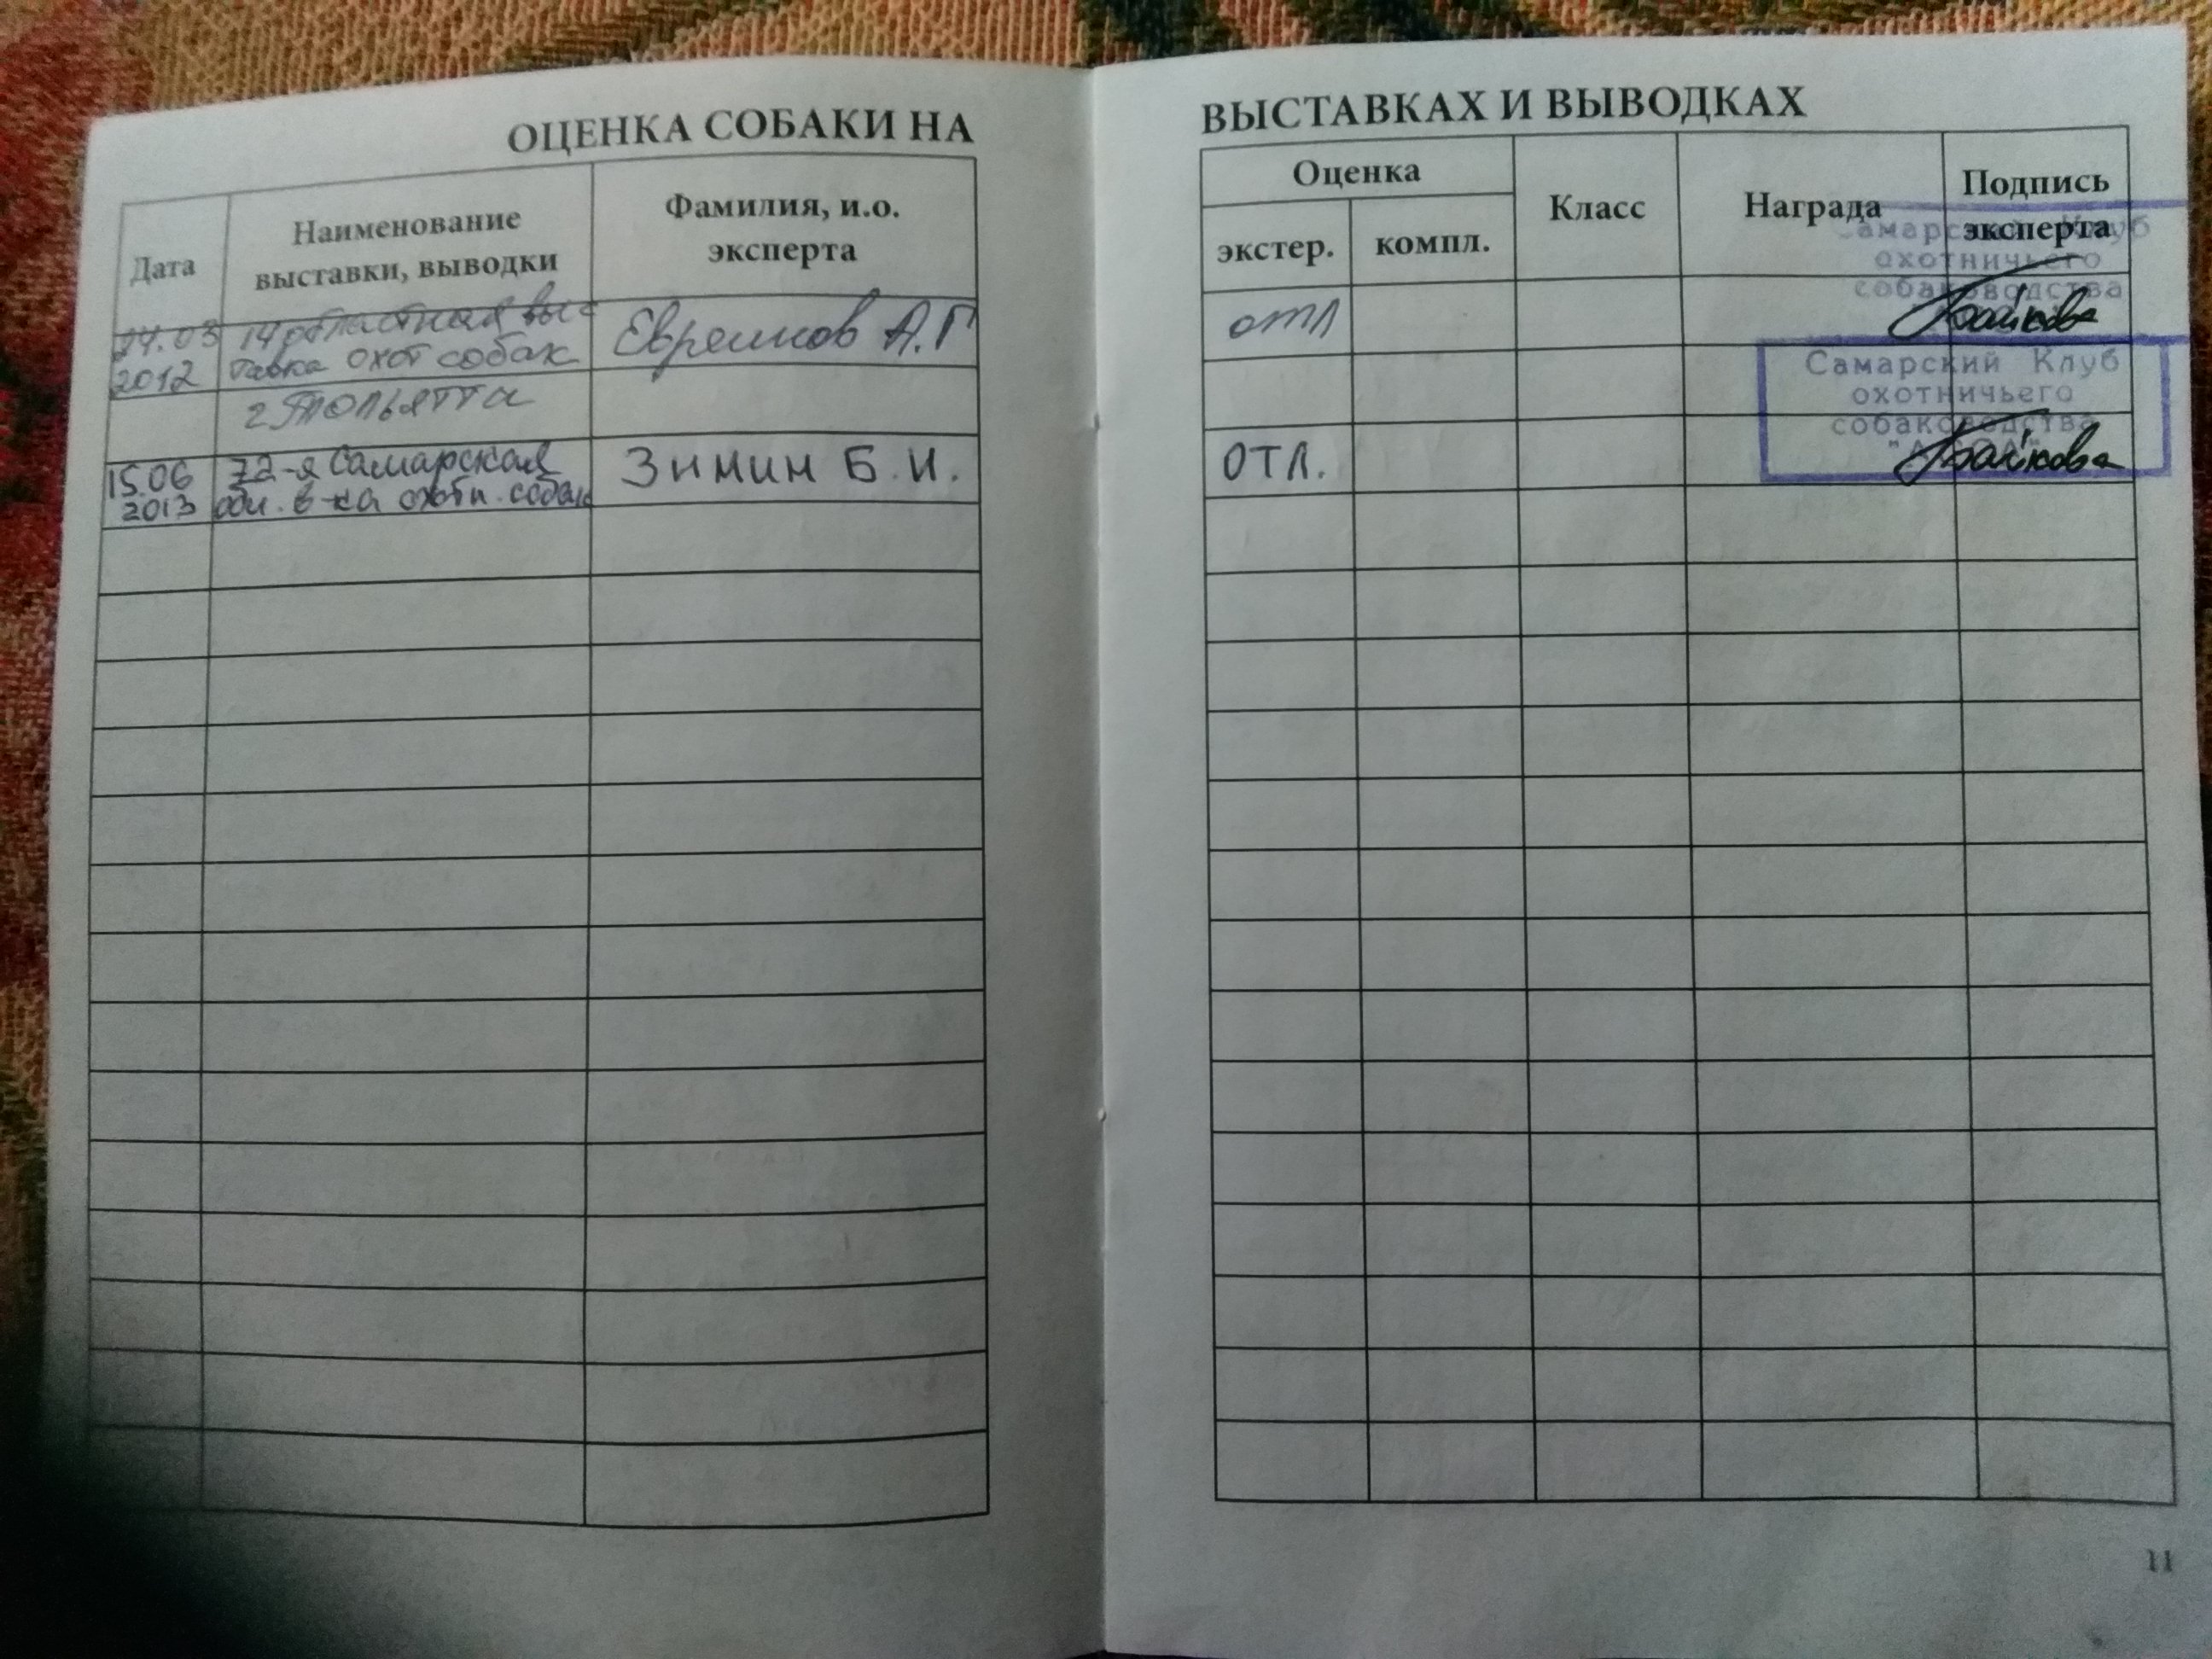 ОЦЕНКА СОБАКИ НА
Дата
Наименование
выставки, выводки
Фамилия, и.о.
эксперта
14 областная выс
тавка охот собак
2012
г Тольятти
Евреинов А.Г
15.06
2013
72-я Самарская
обл. в-ка охотн. собак
Зимин Б.И.
ВЫСТАВКАХ И ВЫВОДКАХ
Оценка
экстер.
компл.
Класс
Награда
Подпись
эксперта
Самарский Клуб
охотничьего
собаководства
отл
Самарский Клуб
охотничьего
собаководства
отл.
11